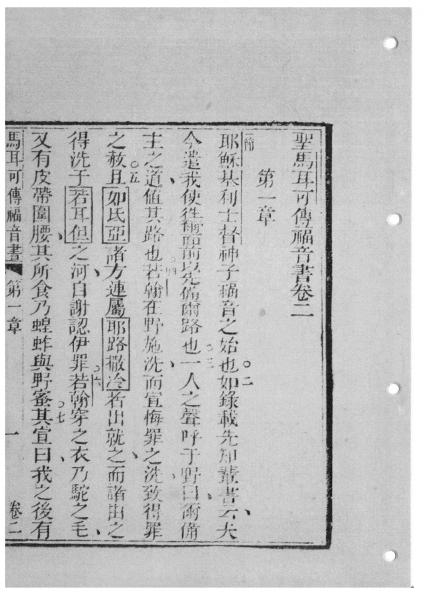 聖馬耳可傳福音書卷二
第一章
一節耶穌基利士督神子福音之始也○二如錄載先知輩書云夫
今遣我使徃爾面前以先備爾路也○三一人之聲呼于野曰爾備
主之道値其路也○四若翰在野施洗而宣悔罪之洗致得罪
之赦○五且如氏亞諸方連屬耶路撒冷者出就之而諸由之
得洗于若耳但之河自謝認伊罪○六若翰穿之衣乃駝之毛
又有皮帶圍腰其所食乃蝗蚱與野蜜○七其宣曰我之後有
馬耳可傳福音書 第一章 一 卷二